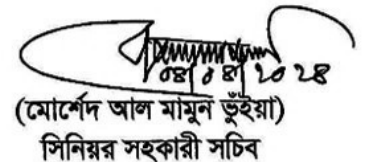 ০৪/০৪/২০২৪
(মোর্শেদ আল মামুন ভুঁইয়া)
সিনিয়র সহকারী সচিব